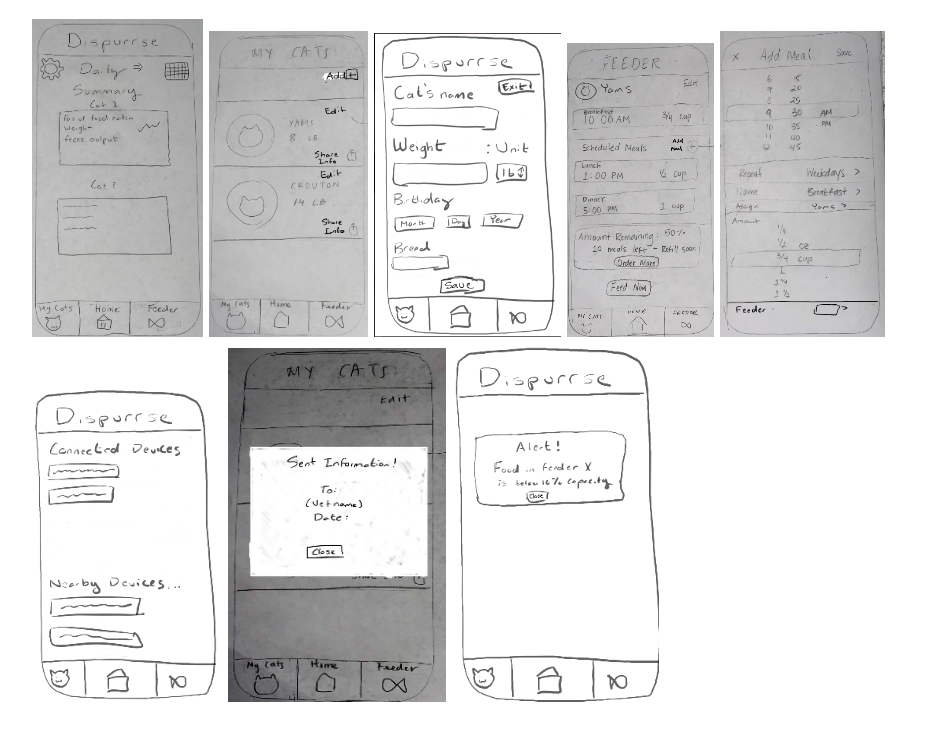 Dispurrse
Daily ⇒
Summary
Cat 1
lbs of food eaten
weight
feces output
Cat ?
My Cats Home Feeder
MY CATS
Add +
Edit
YAMS
8 LB
Share
Info
Edit
CROUTON
14 LB
Share
Info
My Cats Home Feeder
Dispurrse
Cat's name Exit
Weight : Unit
lb
Birthday
Month Day Year
Breed
Save
FEEDER
Yams Edit
Breakfast
10:00 AM 3/4 cup
Scheduled Meals Add
Meal +
Lunch
1:00 PM 1/2 cup
Dinner
5:00 PM 1 cup
Amount Remaining 50%
20 meals left - Refill soon
Order More
Feed Now
MY CATS HOME FEEDER
X Add Meal Save
6 15
7 20
8 25
9 30 AM
10 35 PM
11 40
12 45
Repeat Weekdays >
Name Breakfast >
Assign Yams >
Amount
1/4
1/2 oz
3/4 cup
1
1 1/4
1 1/2
Feeder >
Dispurrse
Connected Devices
Nearby Devices...
MY CATS
Edit
Sent Information!
To:
(Vet name)
Date:
Close
My Cats Home Feeder
Dispurrse
Alert!
Food in feeder X
is below 10% capacity
Close